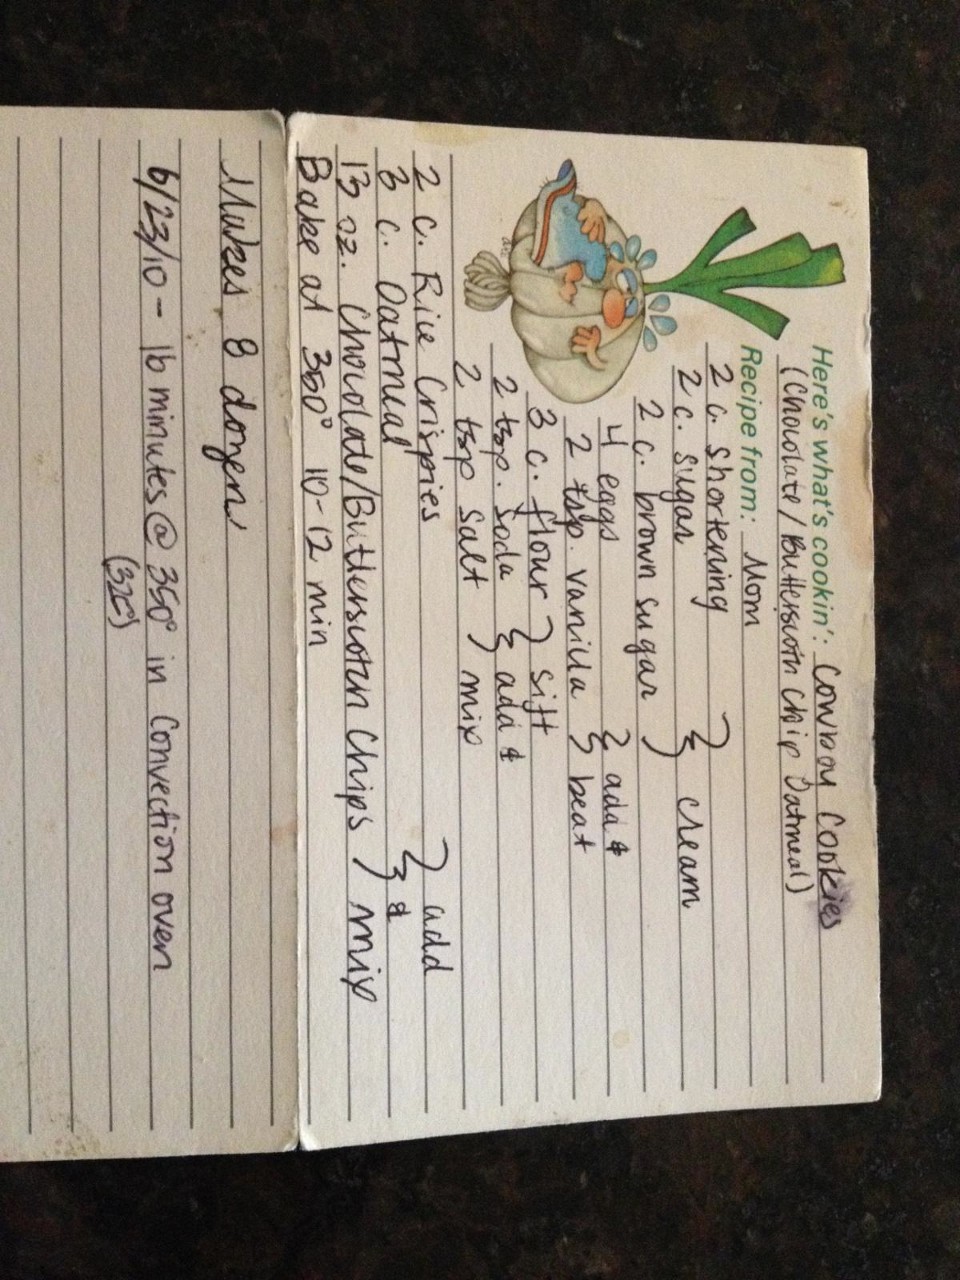 Here's what's cookin': Cowboy Cookies
(Chocolate/Butterscotch Chip Oatmeal)
Recipe from: Mom
2 c. shortening
2 c. sugar } cream
2 c. brown sugar
4 eggs } add &
2 tsp. vanilla beat
3 c. flour } sift
2 tsp. Soda add &
2 tsp Salt mix
2 c. Rice Crispies } add
3 c. Oatmeal &
13 oz. Chocolate/Butterscotch Chips mix
Bake at 350° 10-12 min
Makes 8 dozen
6/23/10 - 16 minutes @ 350° in Convection oven